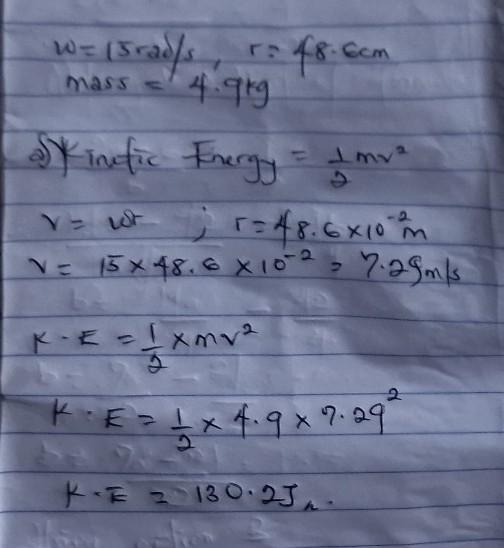 w = 15rad/s, r = 48.6cm
mass = 4.9kg
a) Kinetic Energy = 1/2 mv²
v = wr ; r = 48.6 × 10⁻² m
v = 15 × 48.6 × 10⁻² = 7.29m/s
K.E = 1/2 × mv²
K.E = 1/2 × 4.9 × 7.29²
K.E = 130.2J